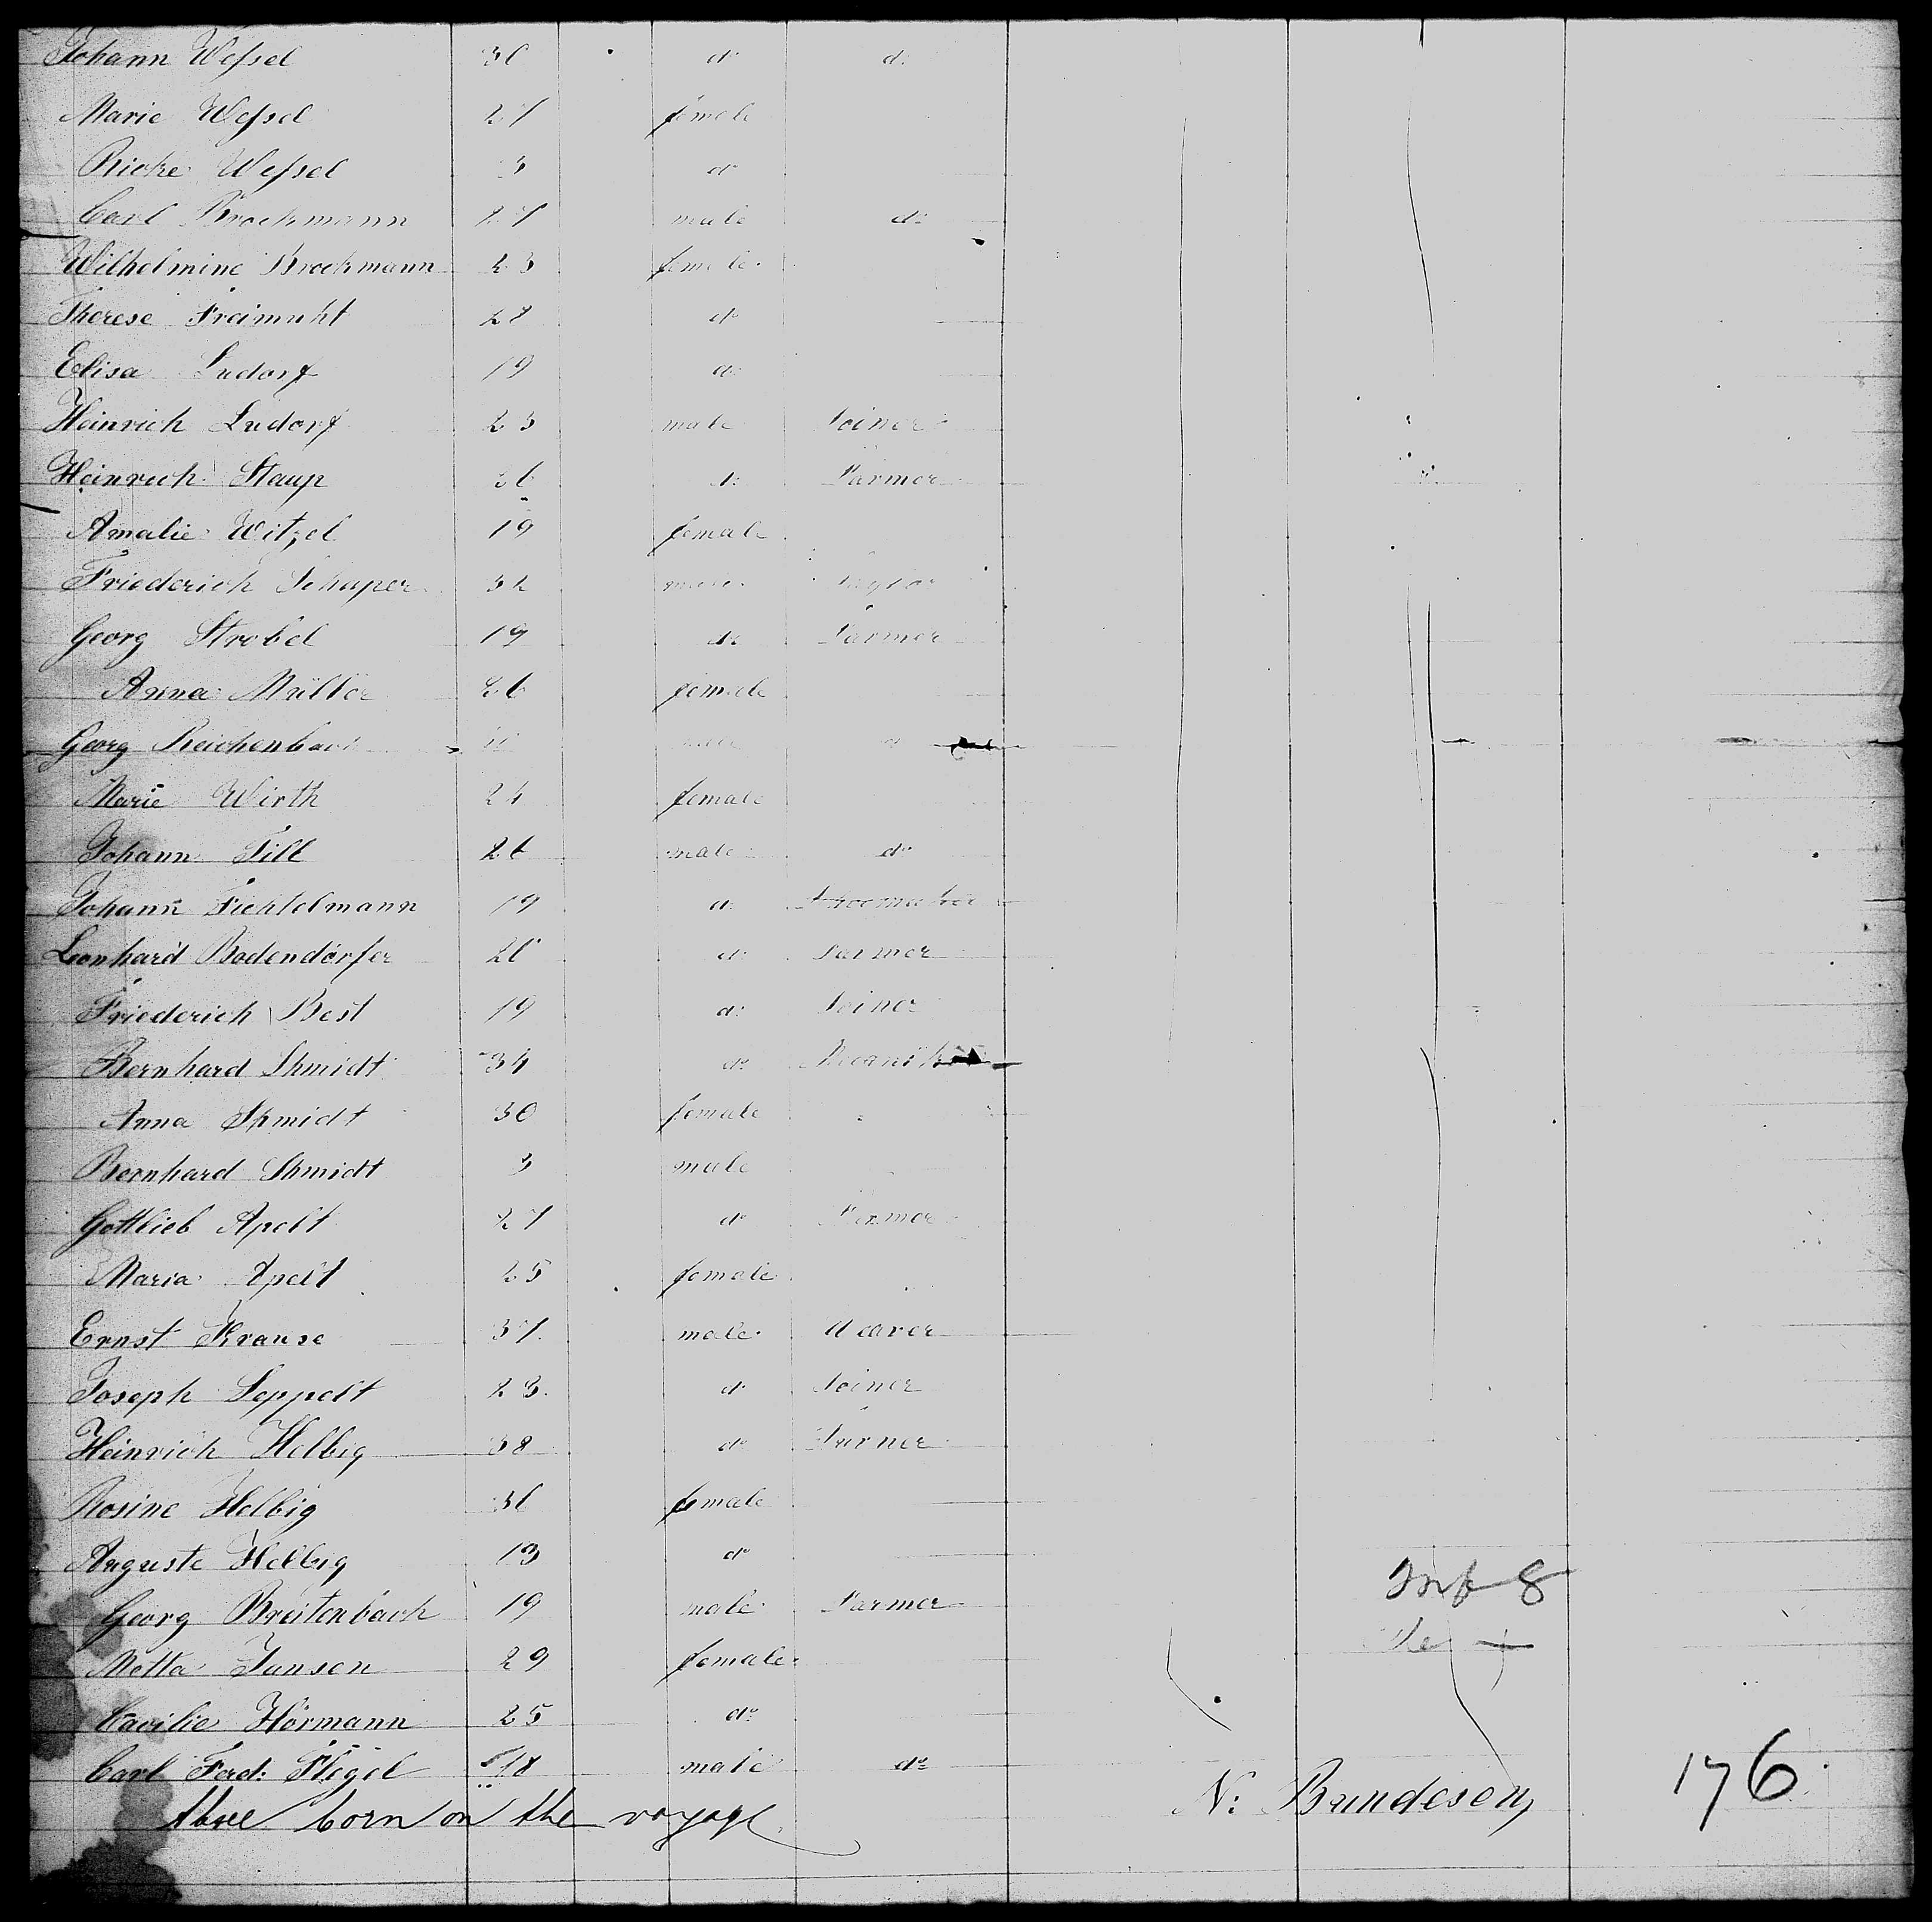 Johann Wessel 36 do do
Marie Wessel 27 female
Ricke Wessel 3 do
Carl Brockmann 27 male do
Wilhelmine Brockmann 23 female
Therese Freimuht 28 do
Elisa Ludorf 19 do
Heinrich Ludorf 23 male Joiner
Heinrich Staup 36 do Farmer
Amalie Witzel 19 female
Friederich Schaper 32 male Taylor
Georg Strobel 19 do Farmer
Anna Müller 26 female
Georg Reichenbach
Marie Wirth 24 female
Johann Till 26 male do
Johann Fichtelmann 19 do Shoemaker
Leonhard Bodendörfer 26 do Farmer
Friederich Best 19 do Joiner
Bernhard Shmidt 34 do
Anna Shmidt 30 female
Bernhard Shmidt 3 male
Gottlieb Apelt 27 do Farmer
Maria Apelt 25 female
Ernst Krause 37 male Weaver
Joseph Seppelt 23 do Joiner
Heinrich Helbig 38 do Turner
Rosine Helbig 36 female
Auguste Helbig 13 do
Georg Breitenbach 19 male Farmer
Metta Jansen 29 female
Cacilie Hörmann 25 do
Carl Ferd: Flügel 18 male do
three born on the voyage
N: Bundesen 176